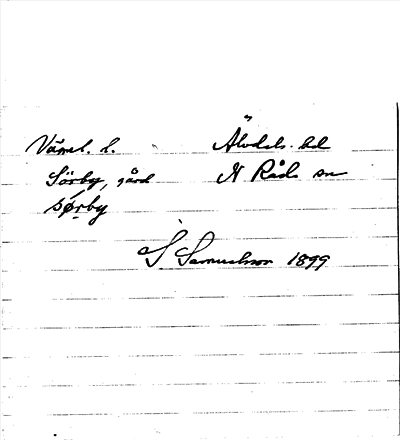 Värml. l. Älvdals hd
Sörby, gård N Råda sn
sǿrby
S Samuelsson 1899